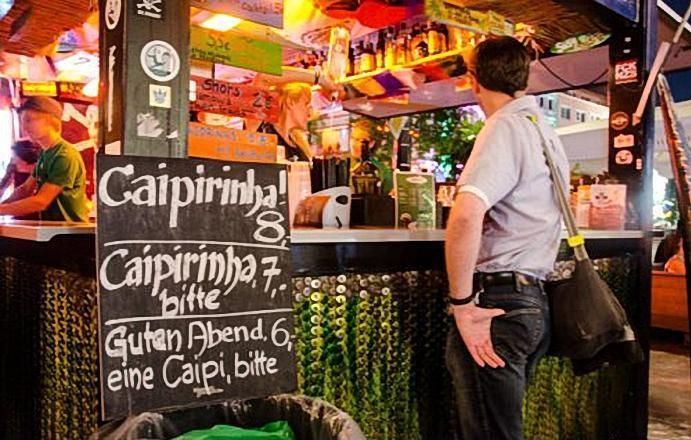 Caipirinha!
8,
Caipirinha, 7,-
bitte
Guten Abend, 6,
eine Caipi, bitte
Shots 2€
FCK
NZS